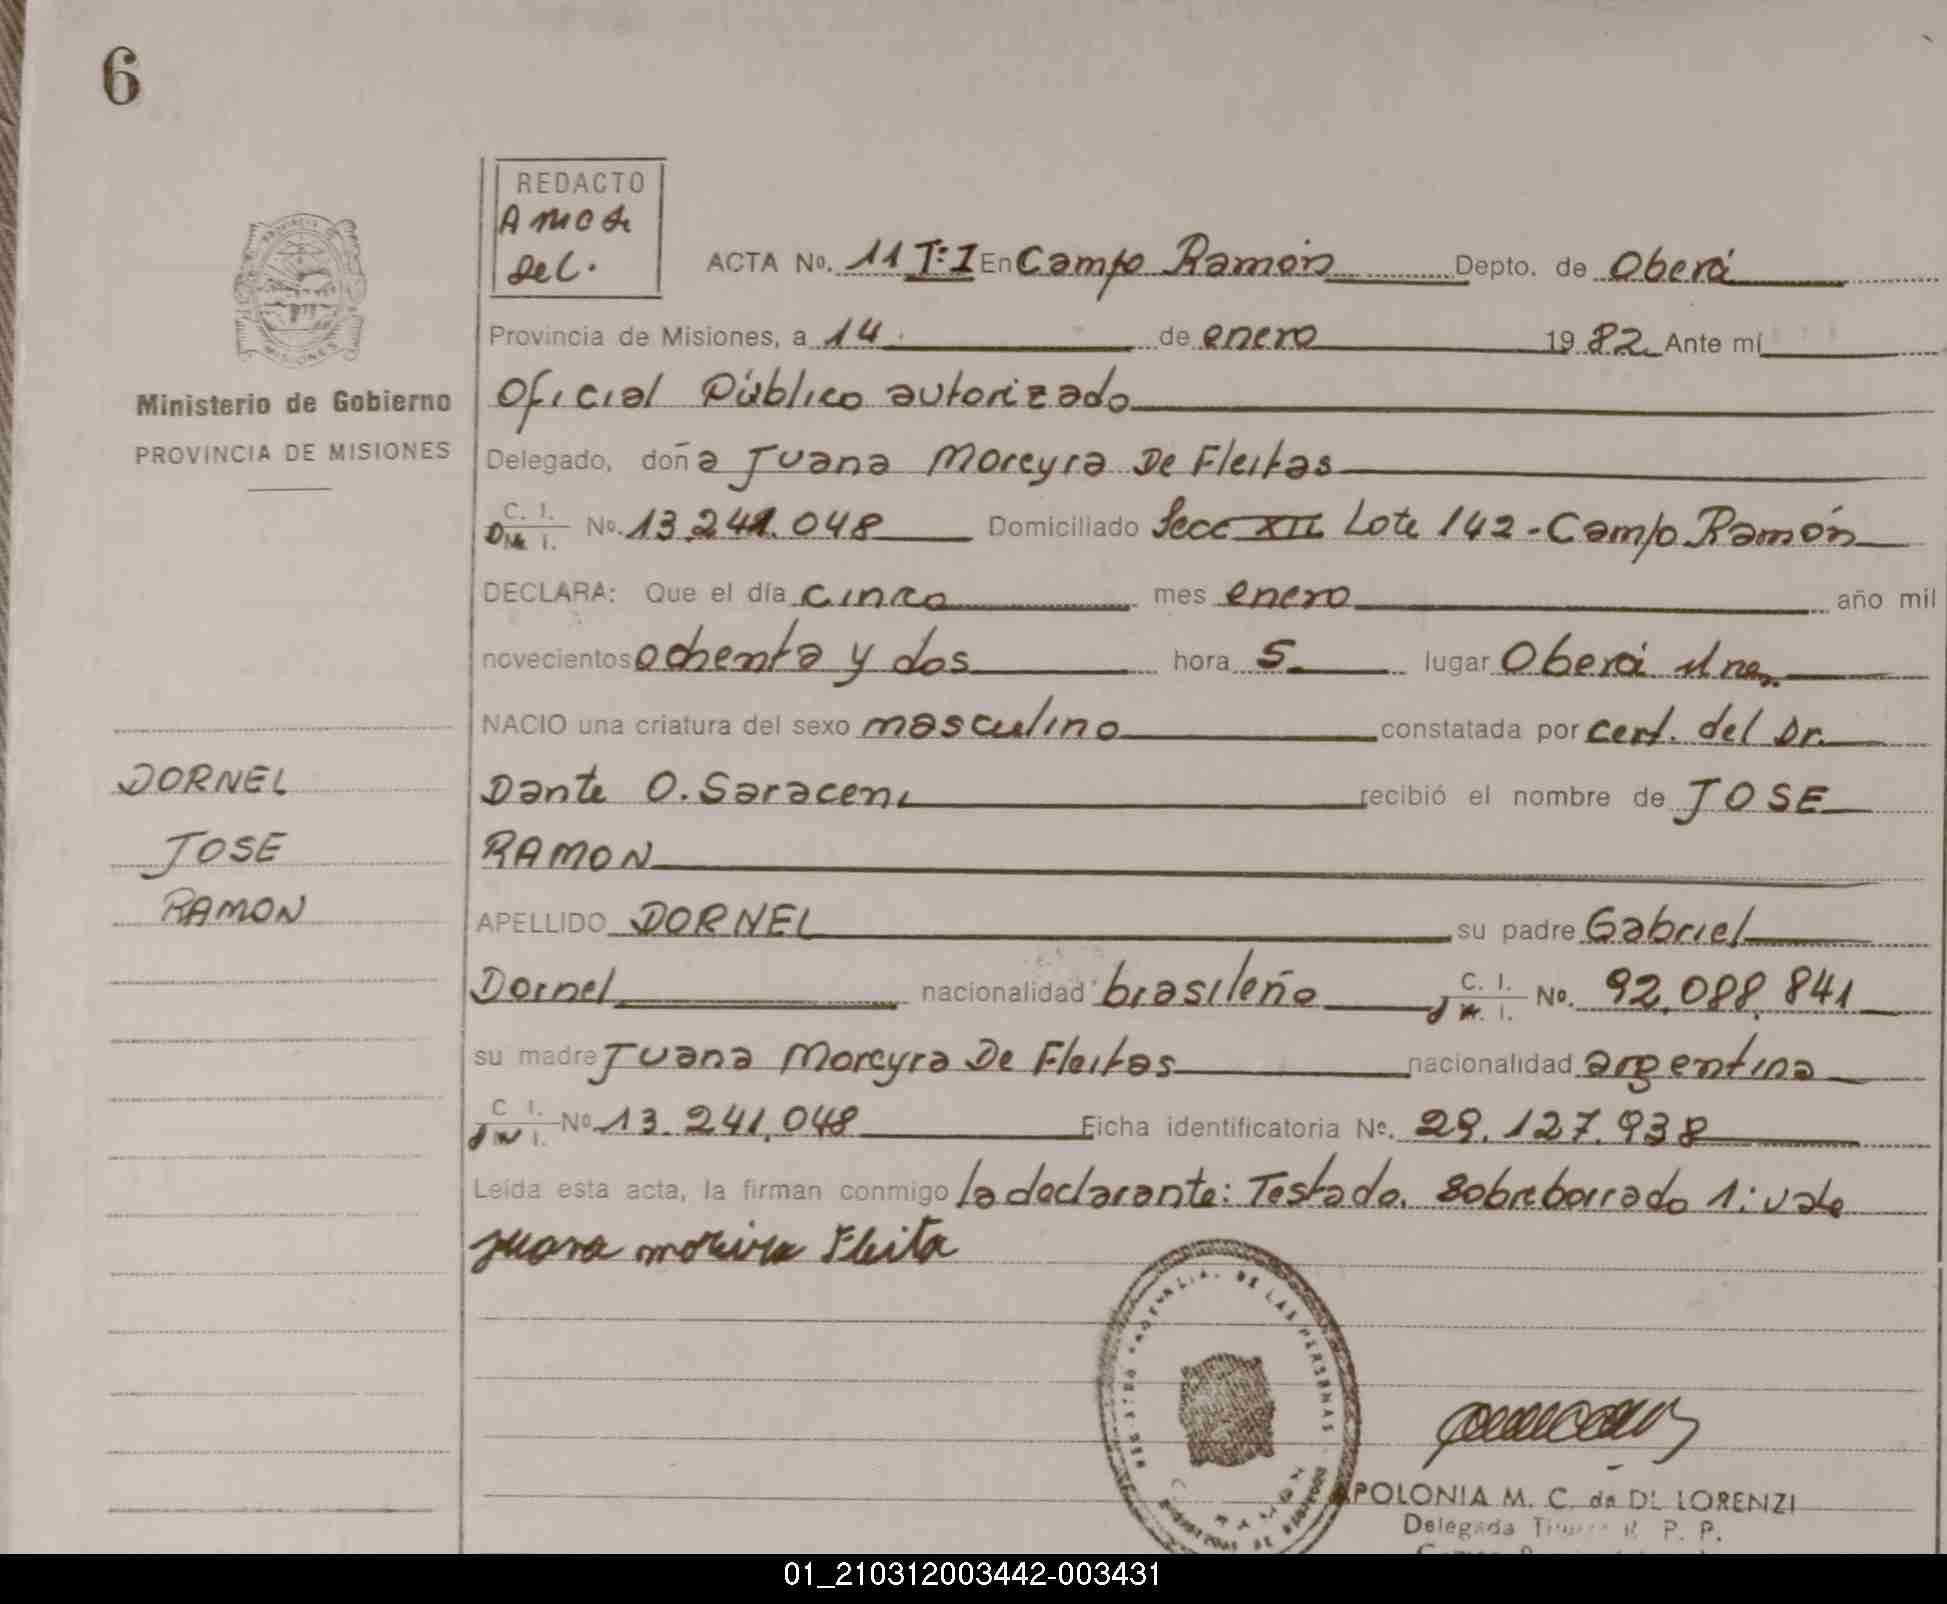 6
REDACTO
AMC de
Del.
ACTA No. 11 T:I En Campo Ramón Depto. de Oberá
Provincia de Misiones, a 14 de enero 1982 Ante mí
Oficial Público autorizado
Ministerio de Gobierno
PROVINCIA DE MISIONES
Delegado, doña Juana Moreyra De Fleitas
C. I.
D. I. No. 13.241.048 Domiciliado Secc XII Lote 142 - Campo Ramón
DECLARA: Que el día cinco mes enero año mil
novecientos ochenta y dos hora 5 lugar Oberá Mnes.
NACIO una criatura del sexo masculino constatada por cert. del Dr.
Dante O. Saraceni recibió el nombre de JOSE
RAMON
DORNEL
JOSE
RAMON
APELLIDO DORNEL su padre Gabriel
Dornel nacionalidad brasileña C. I. No. 92.088.841
su madre Juana Moreyra De Fleitas nacionalidad argentina
C. I. No. 13.241.048 Ficha identificatoria No. 29.127.938
Leída esta acta, la firman conmigo la declarante: Testado. Sobreborrado 1: vale
Juana moreira Fleita
APOLONIA M. C. de DI LORENZI
Delegada Titular R. P. P.
01_210312003442-003431